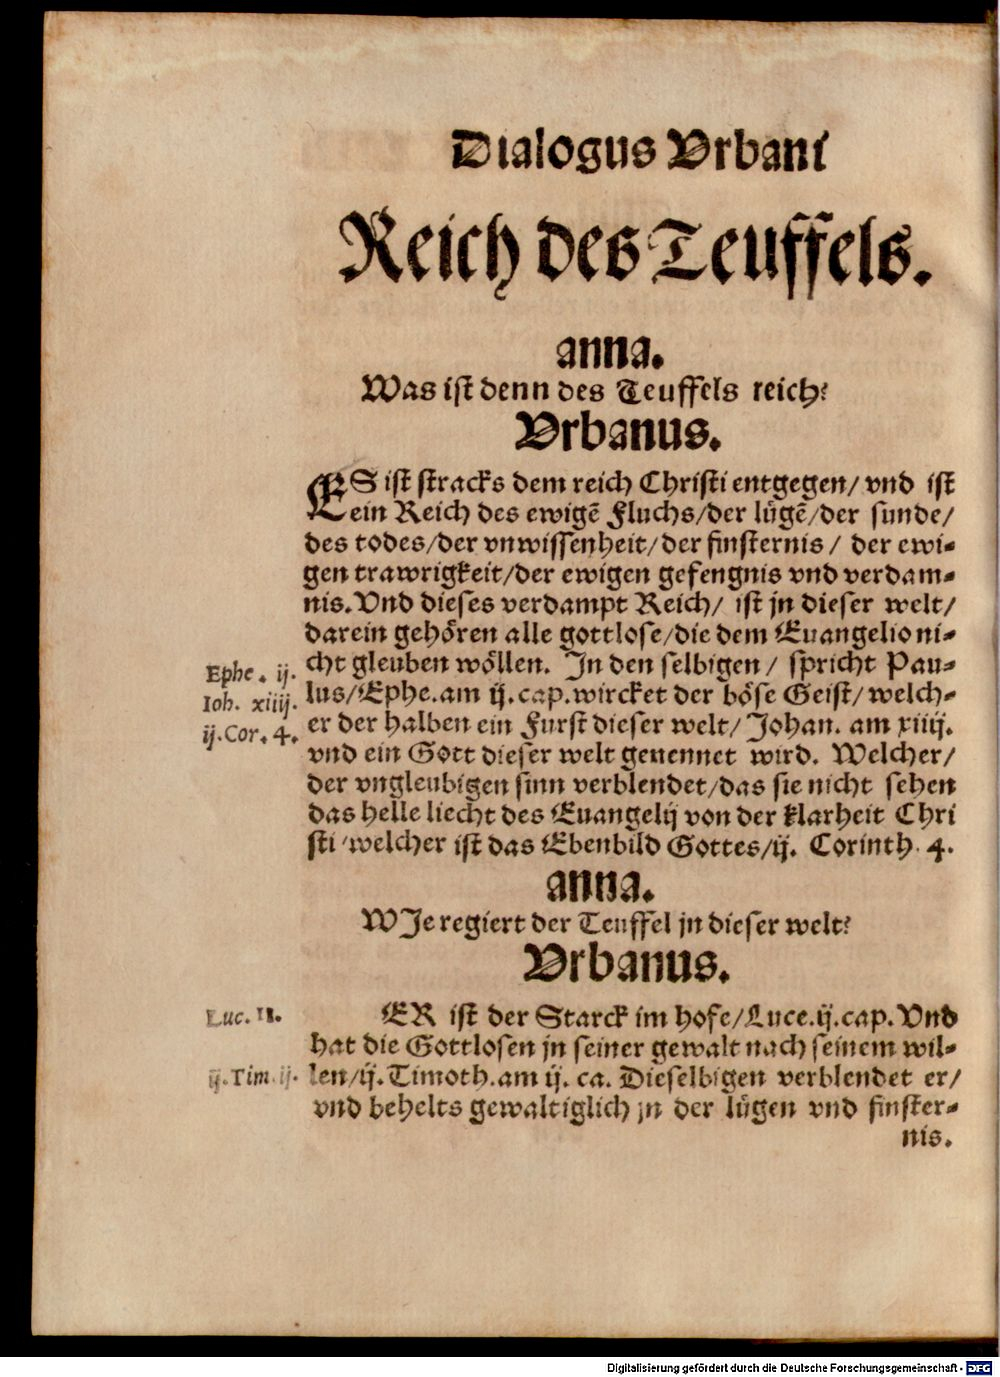 Dialogus Vrbani
Reich des Teuffels.
anna.
Was ist denn des Teuffels reich?
Vrbanus.
ES ist stracks dem reich Christi entgegen/ vnd ist
ein Reich des ewigē Fluchs/der lügē/der sunde/
des todes/der vnwissenheit/der finsternis/ der ewi-
gen trawrigkeit/der ewigen gefengnis vnd verdam-
nis. Vnd dieses verdampt Reich/ ist jn dieser welt/
darein gehören alle gottlose/die dem Euangelio ni-
Ephe. ij.
cht gleuben wöllen. In den selbigen/ spricht Pau-
Ioh. xiiij.
lus/Ephe. am ij. cap. wircket der böse Geist/welch-
ij.Cor. 4.
er der halben ein Furst dieser welt/ Johan. am xiiij.
vnd ein Gott dieser welt genennet wird. Welcher/
der vngleubigen sinn verblendet/das sie nicht sehen
das helle liecht des Euangelij von der klarheit Chri
sti/welcher ist das Ebenbild Gottes/ij. Corinth. 4.
anna.
WJe regiert der Teuffel jn dieser welt?
Vrbanus.
Luc. 11.
ER ist der Starck im hofe/Luce.ij.cap. Vnd
hat die Gottlosen jn seiner gewalt nach seinem wil-
ij.Tim.ij.
len/ij. Timoth. am ij. ca. Dieselbigen verblendet er/
vnd behelts gewaltiglich jn der lügen vnd finster-
nis.
Digitalisierung gefördert durch die Deutsche Forschungsgemeinschaft - DFG